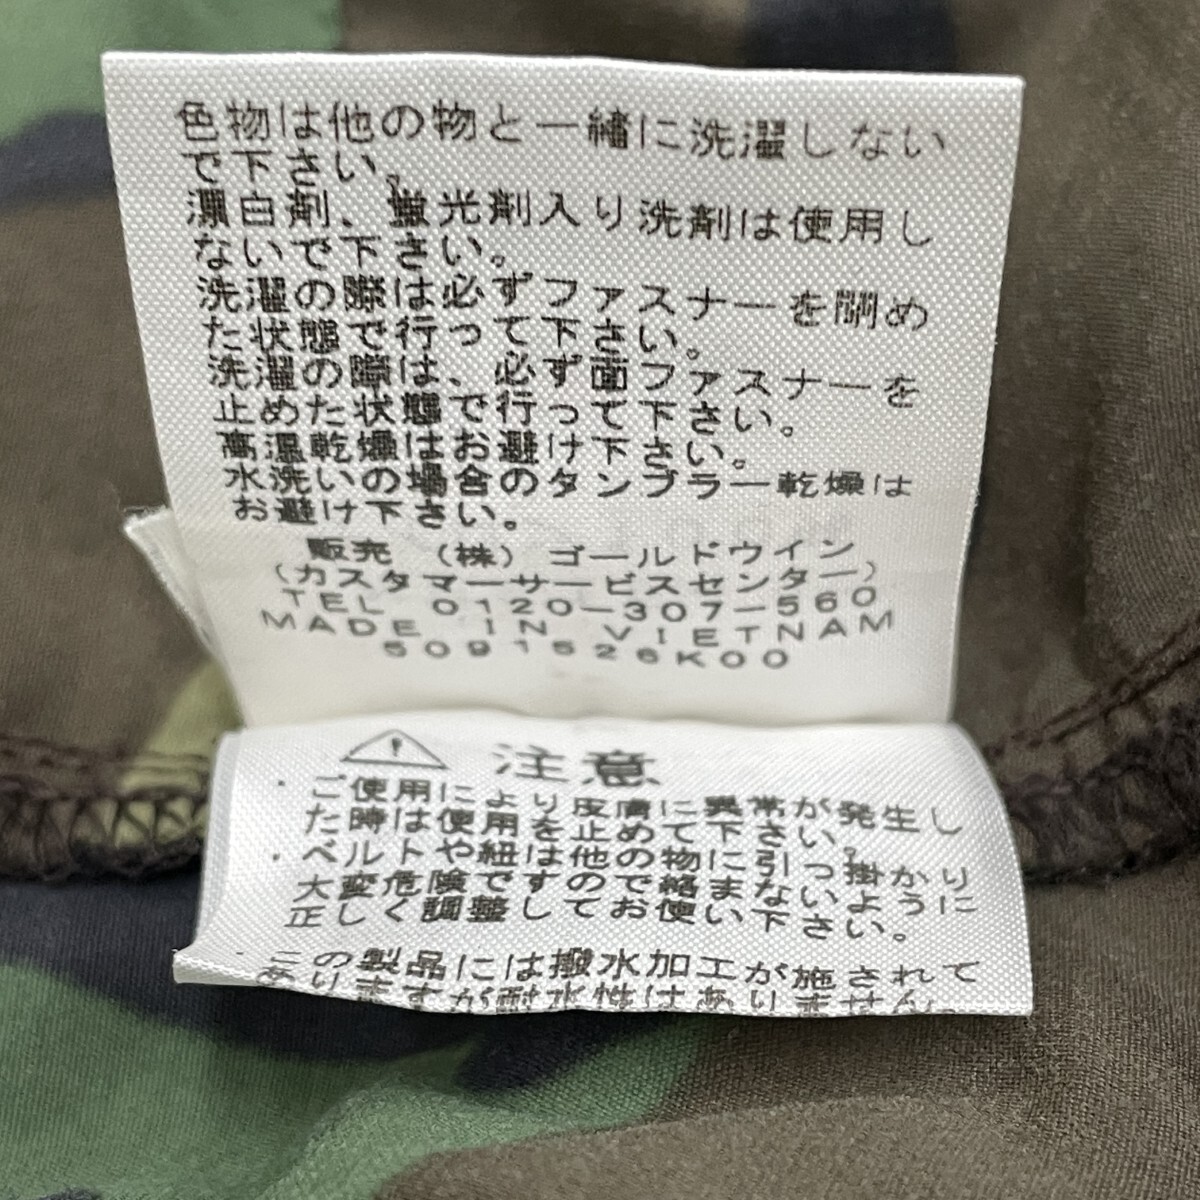 色物は他の物と一緒に洗濯しない
で下さい。
漂白剤、蛍光剤入り洗剤は使用し
ないで下さい。
洗濯の際は必ずファスナーを閉め
た状態で行って下さい。
洗濯の際は、必ず面ファスナーを
止めた状態で行って下さい。
高温乾燥はお避け下さい。
水洗いの場合のタンブラー乾燥は
お避け下さい。
販売 (株) ゴールドウイン
(カスタマーサービスセンター)
TEL 0120-307-560
MADE IN VIETNAM
5091526K00
注意
・ご使用により皮膚に異常が発生し
た時は使用を止めて下さい。
・ベルトや紐は他の物に引っ掛かり
大変危険ですので絡まないように
正しく調整してお使い下さい。
・この製品には撥水加工が施されて
ありますが耐水性はありません。